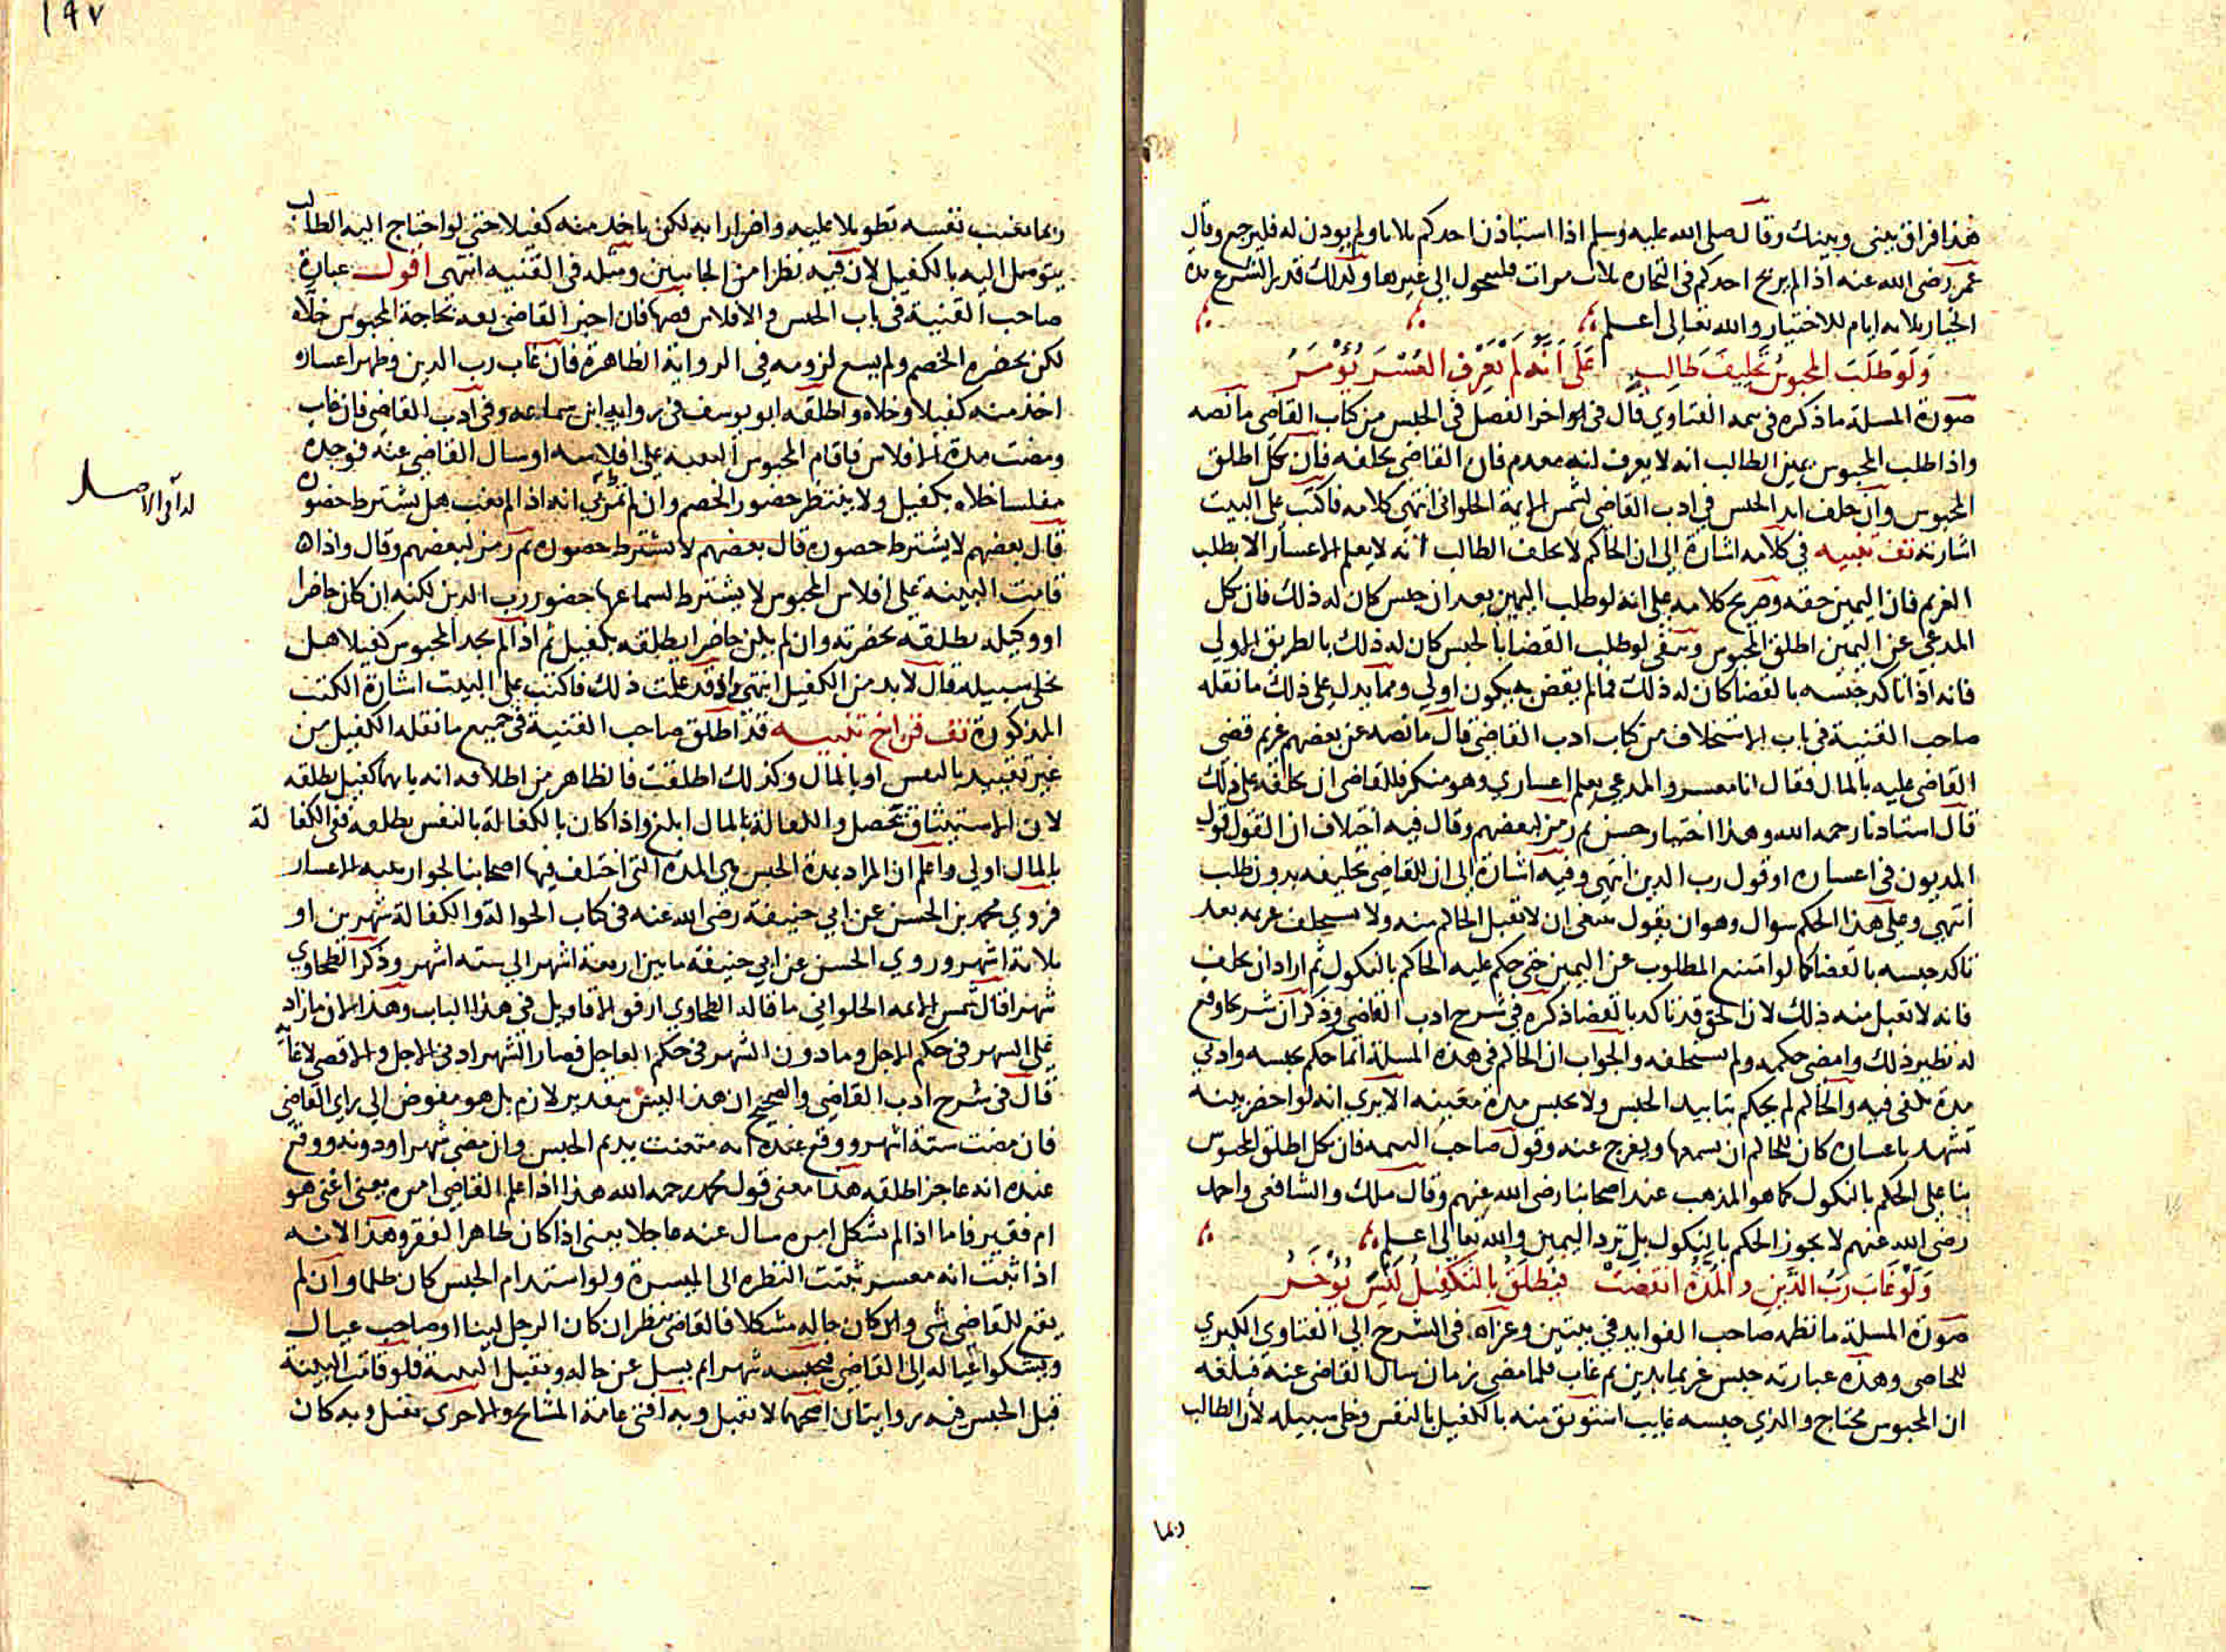 هذا فراق بيني وبينك وقال صلى الله عليه وسلم اذا استاذن احدكم ثلاثا ولم يوذن له فليرجع وقال
عمر رضى الله عنه اذا لم يربح احدكم فى التجارة ثلاث مرات فليتحول الى غيرها وكذلك قدر الشرع مدة
الخيار ثلاثه ايام للاختيار والله تعالى اعلم
وَلَو طَلَبَ المحبوسُ تَحليفَ طَالِبٍ عَلَى اَنّهُ لَمْ يَعْرِفِ العُسْرَ يُؤْمَرُ
صورة المسلة ما ذكره فى الفتاوي قال فى اواخر الفصل فى الحبس من كتاب القاضى ما نصه
واذا طلب المحبوس يمين الطالب انه لا يعرف انه معدم فان القاضي يحلفه فان نكل اطلق
المحبوس وان حلف ابد الحبس في ادب القاضي لشمس الايمة الحلوانى انتهى كلامه فاكتب على البيت
اشارته تف تنبيه في كلامه اشارة الى ان الحاكم لا يحلف الطالب انه لا يعلم الاعسار الا بطلب
الغريم فان اليمين حقه وصريح كلامه على انه لو طلب اليمين بعد ان حبس كان له ذلك فان نكل
المدعي عن اليمين اطلق المحبوس وبقى لو طلب القضا بالحبس كان له ذلك بالطريق الاولي
فانه اذا تاكد حبسه بالقضا كان له ذلك فما لم يقض به يكون اولي ومما يدل على ذلك ما نقله
صاحب القنية فى باب الاستحلاف من كتاب ادب القاضي قال ما نصه عن بعضهم غريم قضى
القاضى عليه بالمال فقال انا معسر والمدعي يعلم اعساري وهو منكر فللقاضى ان يحلفه على ذلك
قال استادنا رحمه الله وهذا اختيار حسن ثم رمز لبعضهم وقال فيه اختلاف ان القول قول
المديون فى اعساره او قول رب الدين انتهى وفيه اشارة الى ان للقاضي تحليفه بدون طلب
انتهي وعلى هذا الحكم سوال وهو ان يقول ينبغى ان لا يقبل الحاكم منه ولا يستحلف غريمه بعد
تاكد حبسه بالقضا كما لو امتنع المطلوب عن اليمين حتى حكم عليه الحاكم بالنكول ثم اراد ان يحلف
فانه لا تقبل منه ذلك لان الحق قد تاكد بالقضا ذكره فى شرح ادب القاضى وذكر ان شريحا وقع
له نظير ذلك وامضى حكمه ولم يستحلفه والجواب ان الحاكم فى هذه المسلة انما حكم بحبسه وادني
مدة تكفى فيه والحاكم لم يحكم بتابيد الحبس ولا بحبس مدة معينه الا يري انه لو احضر بينه
تشهد باعساره كان للحاكم ان يسمعها ويفرج عنه وقول صاحب فان نكل اطلق المحبوس
بنا على الحكم بالنكول كما هو المذهب عند اصحابنا رضى الله عنهم وقال ملك والشافعى واحمد
رضى الله عنهم لا يجوز الحكم بالنكول بل ترد اليمين والله تعالى اعلم
وَلَوْ غَابَ رَبُّ الدَّينِ والمُدّةُ انقَضَتْ فَيُطلَقُ بِالتَكفيلُ لَيْسَ يُؤَخّرُ
صورة المسلة ما نظمه صاحب الفوايد فى بيتين وعزاه فى الشرح الى الفتاوي الكبري
للخاصى وهذه عبارته حبس غريما بدين ثم غاب فلما مضى زمان سال القاضى عنه فبلغه
ان المحبوس محتاج والذي حبسه غايب استوثق منه بالكفيل بالنفس وخلى سبيله لان الطالب
ربما
١٩٧
ربما يغيب نفسه تطويلا عليه واضرارا به لكن ياخذ منه كفيلا حتى لو احتاج اليه الطالب
يتوصل اليه بالكفيل لان فيه نظرا من الجانبين ومثله فى القنيه انتهى اقول عبارة
صاحب القنية فى باب الحبس والافلاس نصها فان اخبر القاضى بعد بحاجة المحبوس خلاه
لكن بحضرة الخصم ولم يبع لزومه فى الرواية الظاهرة فان غاب رب الدين وظهر اعساره
اخذ منه كفيلا وخلاه واطلقه ابو يوسف فى رواية ابن سماعه وفى ادب القاضى فان غاب
ومضت مدة الافلاس فاقام المحبوس البينه على افلاسه او سال القاضى عنه فوجده
مفلسا خلاه بكفيل ولا ينتظر حضور الخصم وان لم انه اذا لم يغب هل يشترط حضوره
قال بعضهم لا يشترط حضوره قال بعضهم لا يشترط حضوره ثم رمز لبعضهم وقال واذا
لد آفى الاصل
قامت البينة على افلاس المحبوس لا يشترط لسماعها حضور رب الدين لكنه ان كان حاضرا
او وكيله يطلقه بحضرته وان لم يكن حاضرا يطلقه بكفيل ثم اذا لم يجد المحبوس كفيلا هل
يخلى سبيله قال لا بد من الكفيل انتهى واذ قد علمت ذلك فاكتب على البيت اشارة الكتب
المذكورة تف فق اخ تنبيه قد اطلق صاحب القنية فى جميع ما نقله الكفيل من
غير تقييد بالنفس او بالمال وكذلك اطلقت فالظاهر من اطلاقه انه بايهما كفيل يطلقه
لان الاستيثاق يحصل والكفالة بالمال ابلغ واذا كان بالكفالة بالنفس يطلقه ففى الكفالة
بالمال اولي واعلم ان المراد بمدة الحبس هى المدة التى اختلف فيها اصحابنا لجوار بينه الاعسار
فروي محمد بن الحسن عن ابي حنيفة رضى الله عنه فى كتاب الحوالة والكفالة شهرين او
ثلاثة اشهر وروي الحسن عن ابي حنيفة ما بين اربعة اشهر الى ستة اشهر وذكر الطحاوي
شهرا قال شمس الايمه الحلواني ما قاله الطحاوي ارفق الاقاويل فى هذا الباب وهذا لان ما زاد
على الشهر فى حكم الاجل وما دون الشهر فى حكم العاجل فصار الشهر ادنى الاجل والاقصى لا غاية
قال فى شرح ادب القاضى والصحيح ان هذا ليس بتقدير لازم بل هو مفوض الى راي القاضى
فان مضت ستة اشهر ووقع عنده انه متعنت يديم الحبس وان مضى شهر او دونه ووقع
عنده انه عاجز اطلقه هذا معنى قول محمد رحمه الله هذا اذا علم القاضى امره يعنى اغنى هو
ام فقير فاما اذا لم يشكل امره سال عنه عاجلا يعنى اذا كان ظاهر الفقر وهذا لانه
اذا ثبت انه معسر ثبتت النظره الى الميسرة ولو استدام الحبس كان ظلما وان لم
يقع للقاضى شى وان كان حاله مشكلا فالقاضى ينظر ان كان الرجل لينا او صاحب عيال
ويشكوا عياله الى القاضى فيحبسه شهرا ثم يسل عن حاله وتقبل البينة فلو قامت البينة
قبل الحبس فيه روايتان اصحهما لا تقبل وبه افتى عامة المشايخ والاخرى تقبل وبه كان